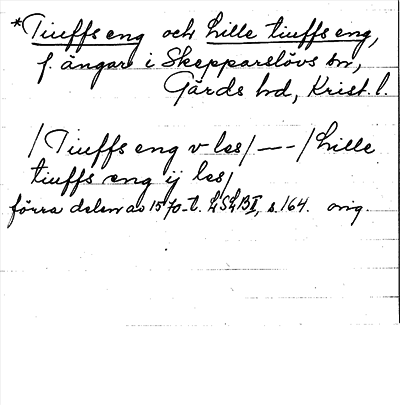 *Tiuffs eng och Lille tiuffs eng,
f. ängar i Skepparslövs sn,
Gärds hd, Krist. l.
/Tiuffs eng v les/ – – /Lille
tiuffs eng ij les/
förra delen av 1570-t. LSLB II, s. 164. orig.